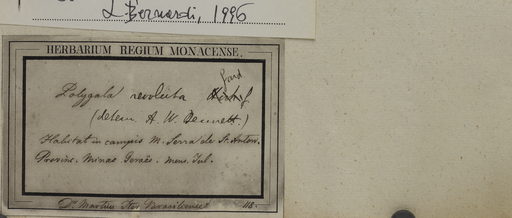 L. Bernardi, 1996
HERBARIUM REGIUM MONACENSE.
Gard
Polygala revoluta
(determ. A. W. Bennett.)
Habitat in campis M. Serra de St. Anton.
Provinc. Minas Geraës. Mens. Jul.
Dr. Martius Iter Brasiliense 118.